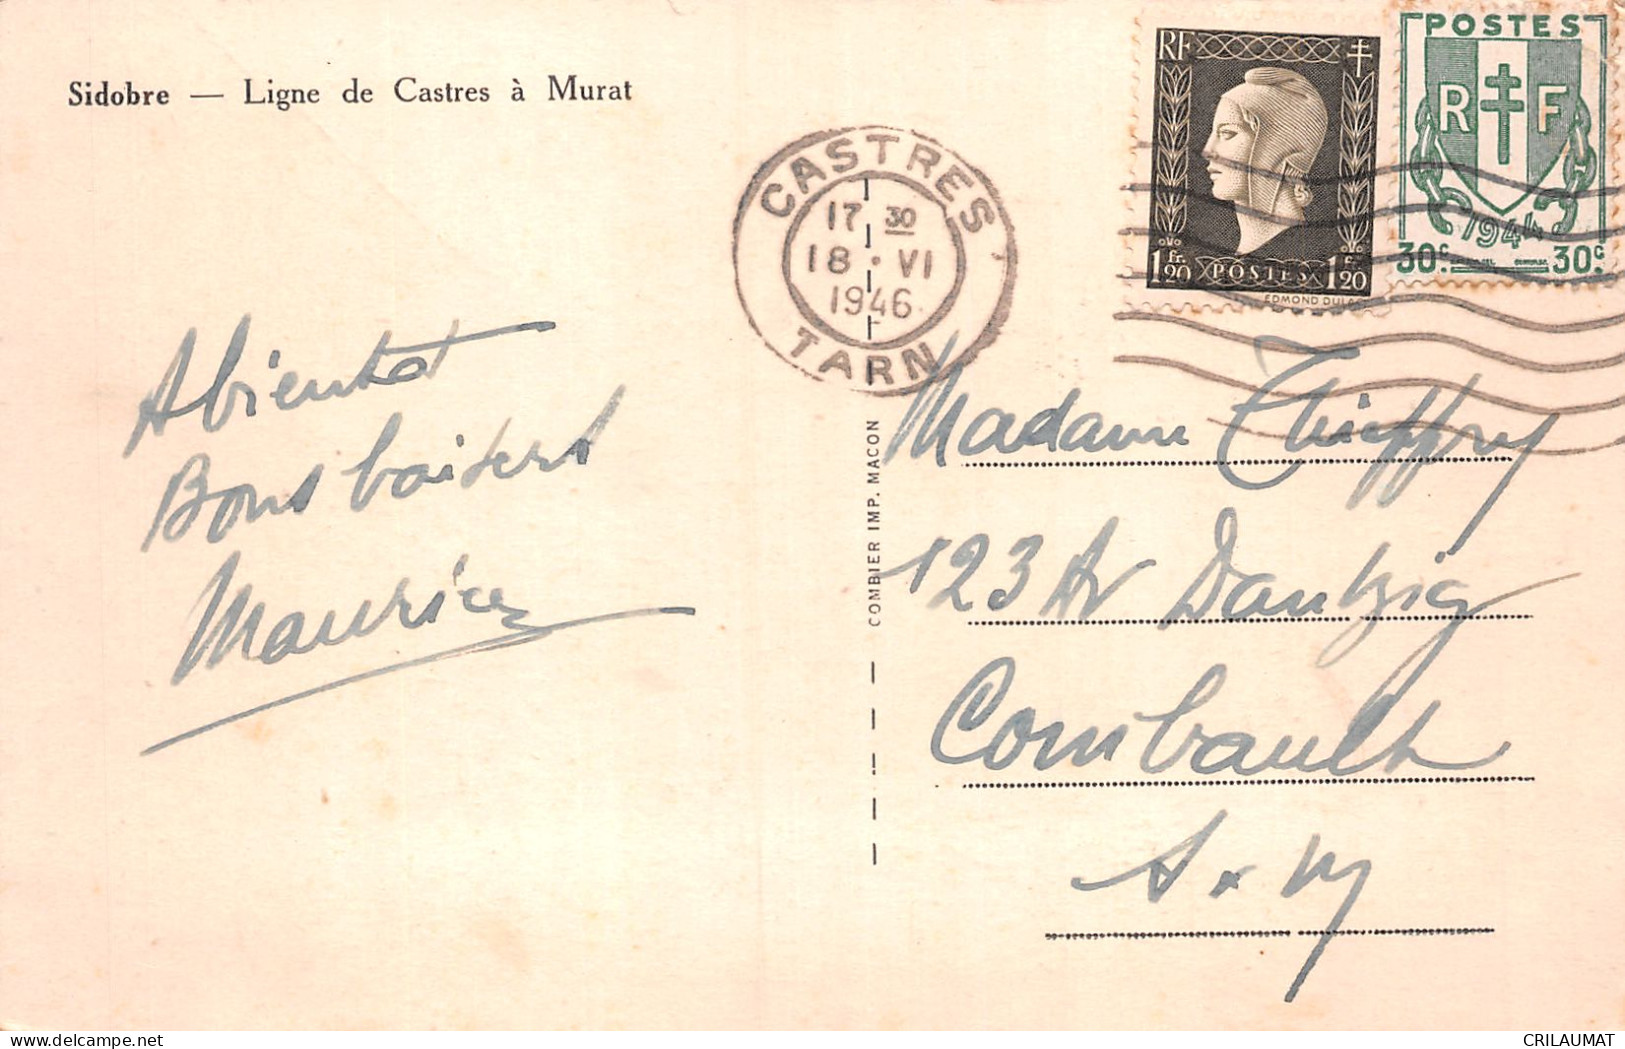 Sidobre — Ligne de Castres à Murat
CASTRES
17 30
18 · VI
1946
TARN
RF
1 fr. 20 POSTES 1 fr. 20
EDMOND DULAC
POSTES
R F
1944
30c. 30c
Abientot
Bons baisers
Maurice
COMBIER IMP. MACON
Madame Thieffry
123 Av Dantzig
Combault
S. x M
www.delcampe.net
CRILAUMAT